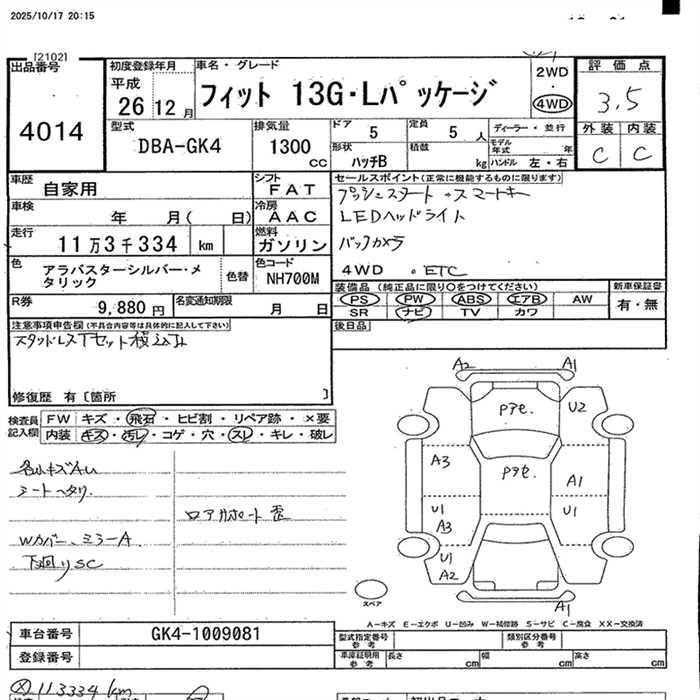 2025/10/17 20:15
[2102]
出品番号
4014
初度登録年月
平成
26 12 月
車名・グレード
フィット 13G・Lパッケージ
2WD
・
4WD
評価点
3.5
外装 内装
C C
型式
DBA-GK4
排気量
1300 CC
ドア 5
定員 5 人
形状 ハッチB
積載 kg
ディーラー・並行
モデル年式 年
ハンドル 左・右
車歴 自家用
シフト FAT
車検 年 月( 日)
冷房 AAC
走行 11万3千334 km
燃料 ガソリン
色 アラバスターシルバー・メタリック
色替
色コード NH700M
R券 9,880 円
名変通知期限 月 日
セールスポイント(正常に機能するものに限ります)
プッシュスタート 。スマートキー
LEDヘッドライト
バックカメラ
4WD 。ETC
装備品 (純正品に限り○をつけてください)
PS PW ABS エアB AW
SR ナビ TV カワ
新車保証書
有・無
後日品
注意事項申告欄(不具合内容等は具体的に記入して下さい)
スタッドレスTセット積込み
修復歴 有〔箇所 〕
検査員記入欄
FW キズ・飛石・ヒビ割・リペア跡・×要
内装 キズ・汚レ・コゲ・穴・スレ・キレ・破レ
シートヘタリ
ロアサポート歪
Wカバー、ミラーA
下廻りSC
A2 A1
U2
A3
A1
U1 U1
A3
U1
A2
A1
スペア
A-キズ E-エクボ U-凹み W-補修跡 S-サビ C-腐食 XX-交換済
車台番号 GK4-1009081
登録番号
型式指定番号 参考
類別区分番号 参考
車庫証明用 参考
長さ cm 幅 cm 高さ cm
113334km